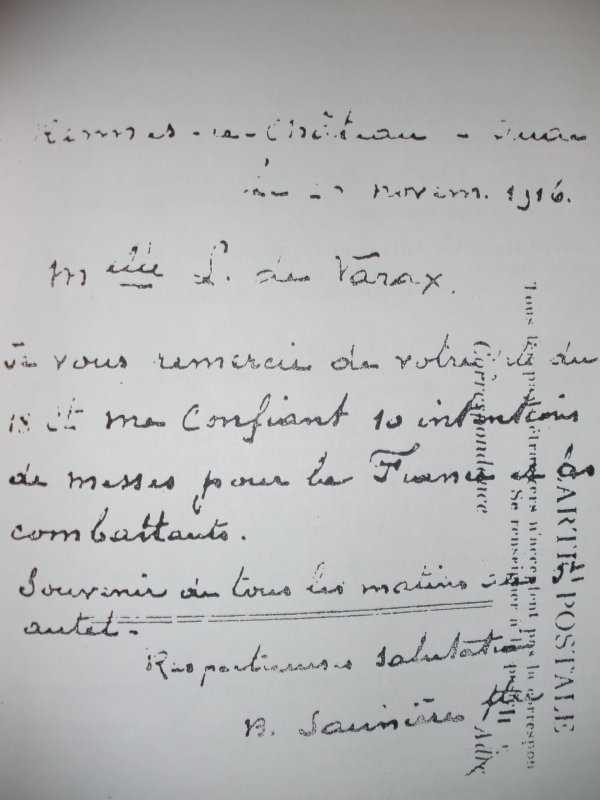 Rennes-le-Château - Aude
novem. 1916.
Melle L. de Varax.
Je vous remercie de votre du
18 ct me confiant 10 intentions
de messes pour la France et les
combattants.
Souvenir de tous les matins
autel.
Respectueuses salutations
B. Saunière
CARTE POSTALE
Correspondance
Tous les pays étrangers n'acceptent pas la correspon
Se renseigner à la